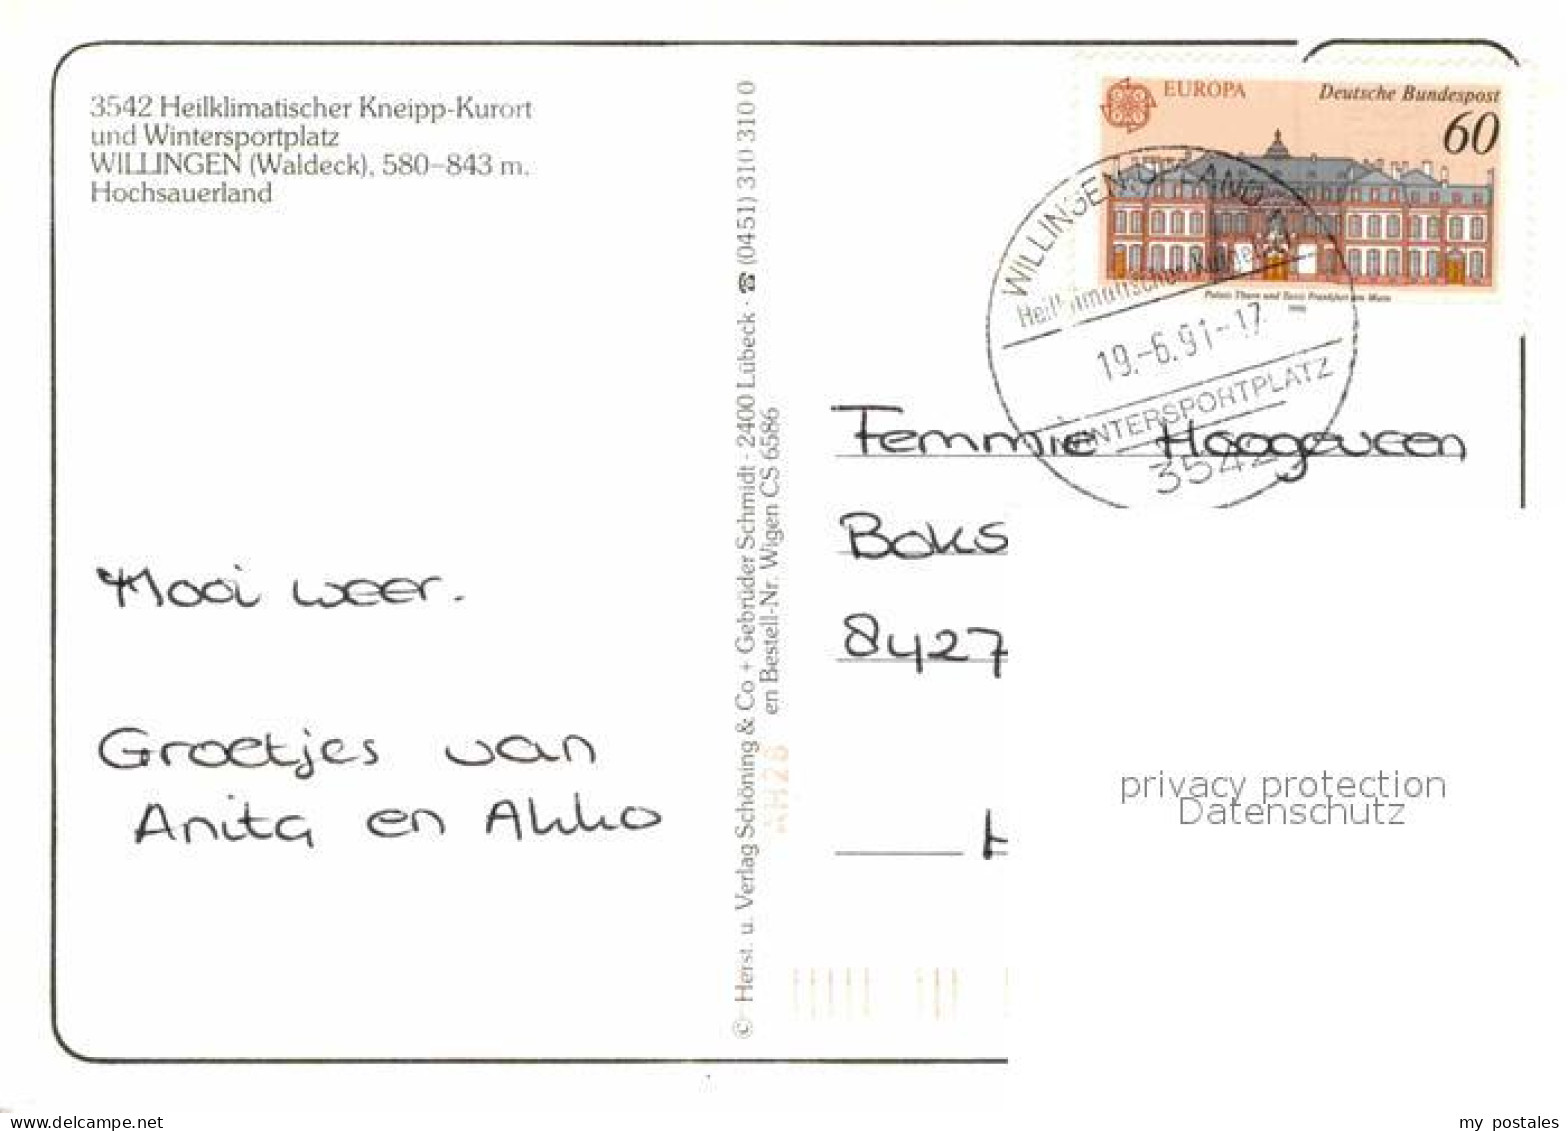 3542 Heilklimatischer Kneipp-Kurort
und Wintersportplatz
WILLINGEN (Waldeck), 580–843 m.
Hochsauerland
Mooi weer.
Groetjes van
Anita en Akko
© Herst. u. Verlag Schöning & Co + Gebrüder Schmidt · 2400 Lübeck · ☎ (0451) 310 310 0
en Bestell-Nr. Wigen CS 6586
EUROPA
Deutsche Bundespost
60
Palais Thurn und Taxis Frankfurt am Main
1990
WILLINGEN
19.-6.91-17
WINTERSPORTPLATZ
3542
Femmie Hoogeveen
Boks
8427
privacy protection
Datenschutz
delcampe.net
my_postales